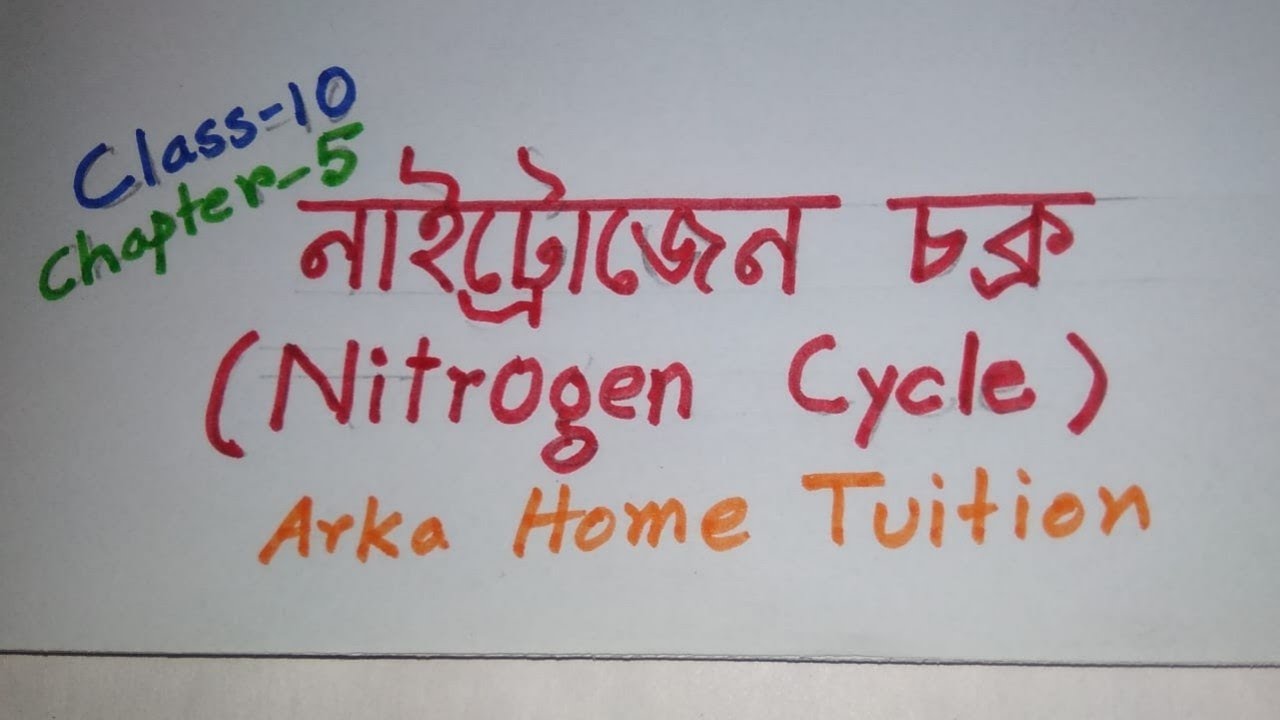 Class-10
Chapter-5
নাইট্রোজেন চক্র
(Nitrogen Cycle)
Arka Home Tuition